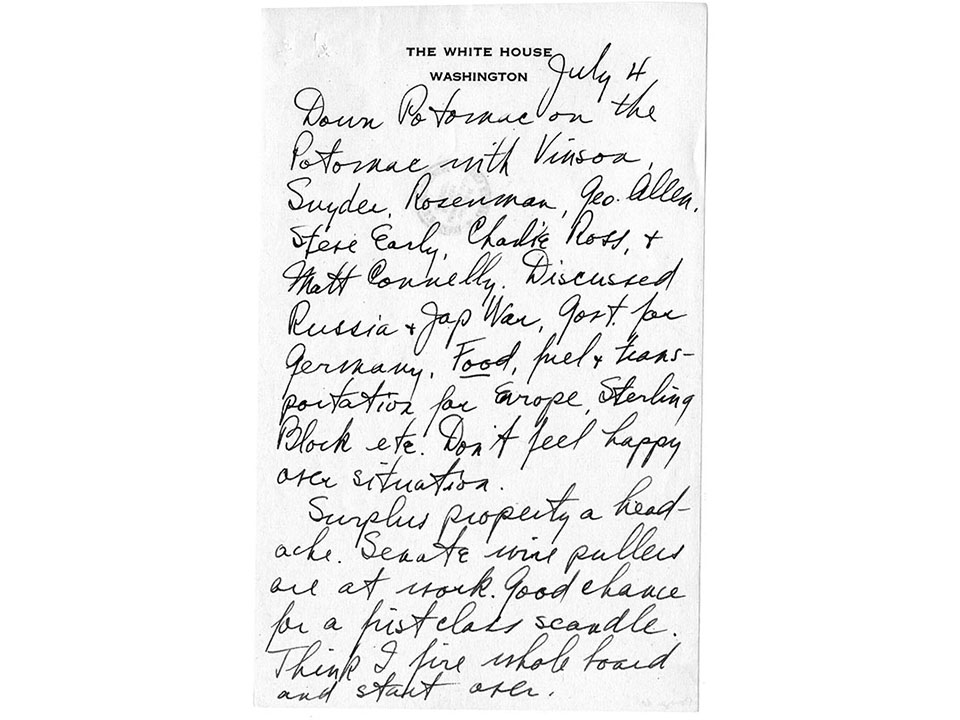 THE WHITE HOUSE
WASHINGTON
July 4
Down Potomac on the
Potomac with Vinson,
Snyder, Rosenman, Geo. Allen,
Steve Early, Charlie Ross, +
Matt Connelly. Discussed
Russia + Jap War, Govt. for
Germany, Food, fuel + trans-
portation for Europe, Sterling
Block etc. Don't feel happy
over situation.
Surplus property a head-
ache. Senate wire pullers
are at work. Good chance
for a first class scandle.
Think I fire whole board
and start over.